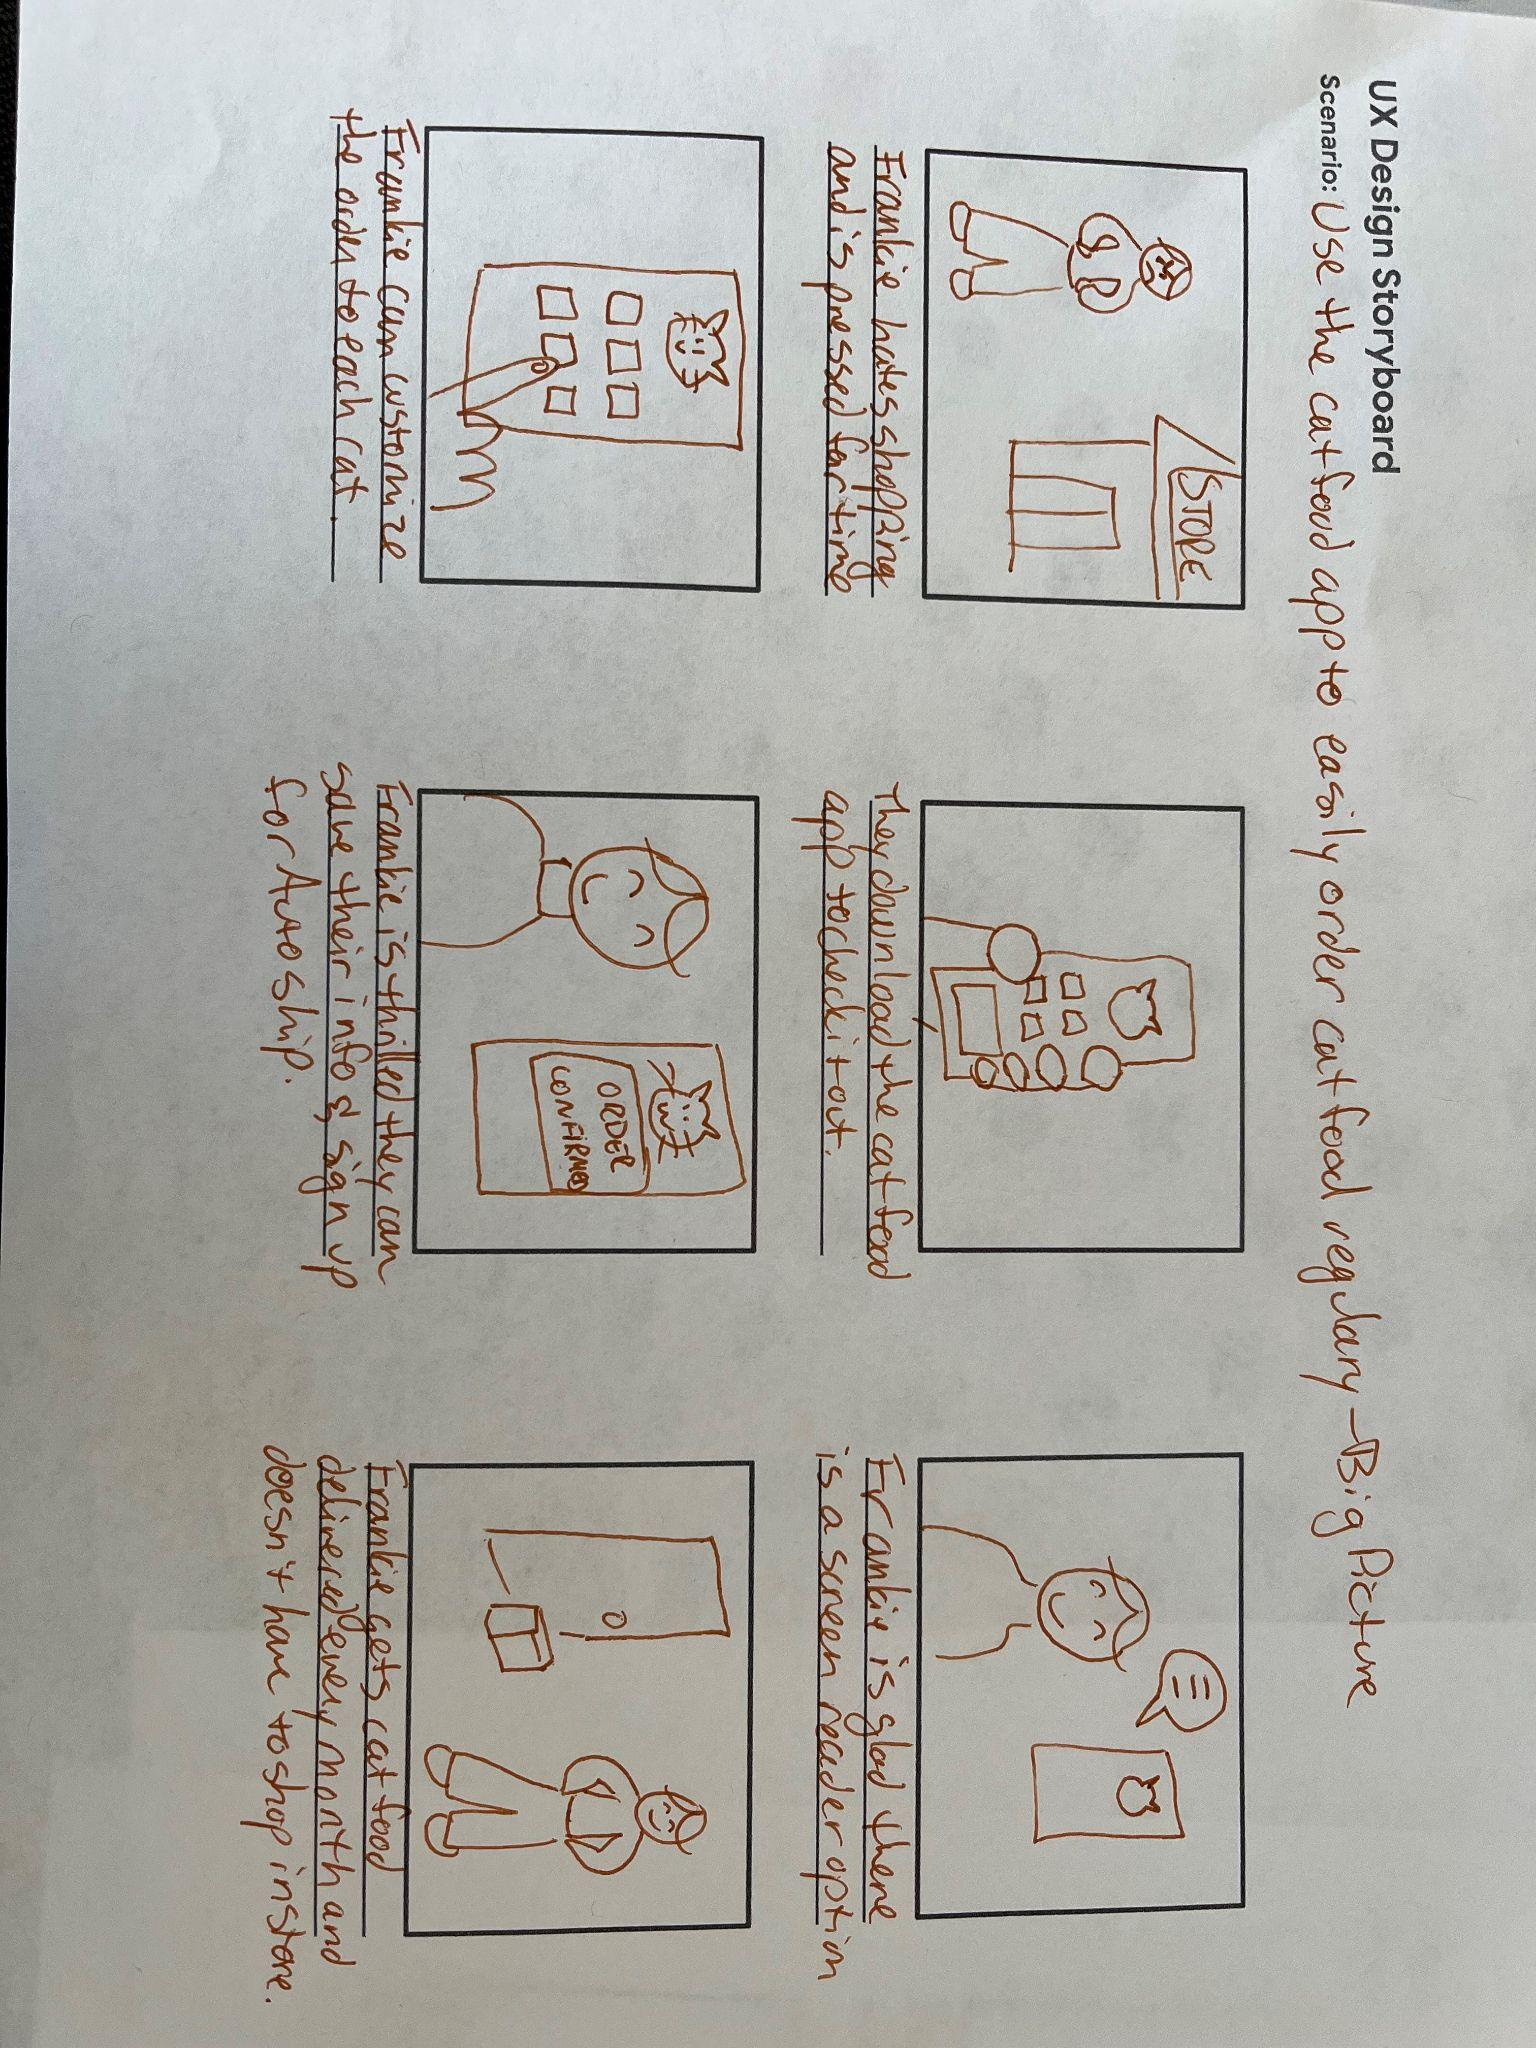 UX Design Storyboard
Scenario: Use the cat food app to easily order cat food regulary - Big Picture
STORE
Frankie hates shopping
and is pressed for time
They download the cat food
app to check it out.
Frankie is glad there
is a screen reader option
Frankie can customize
the order to each cat.
ORDER
CONFIRMED
Frankie is thrilled they can
save their info & sign up
for Autoship.
Frankie gets cat food
delivered every month and
doesn't have to shop in store.